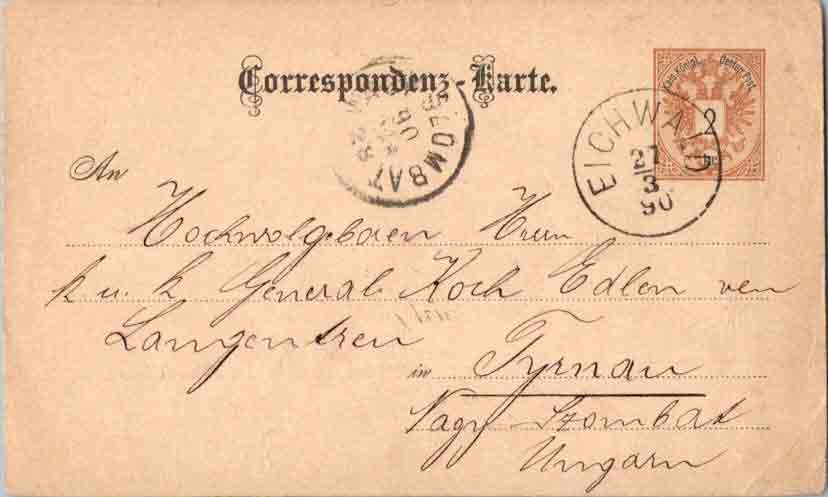 Correspondenz-Karte.
Kais. Königl. Oesterr. Post.
2
kr.
SZOMBAT
90
EICHWALD
27
3
90
An
Hochwolgeboren Herrn
k u. k General Koch Edlen von
Langentreu
in Tyrnau
Nagy Szombat
Ungarn